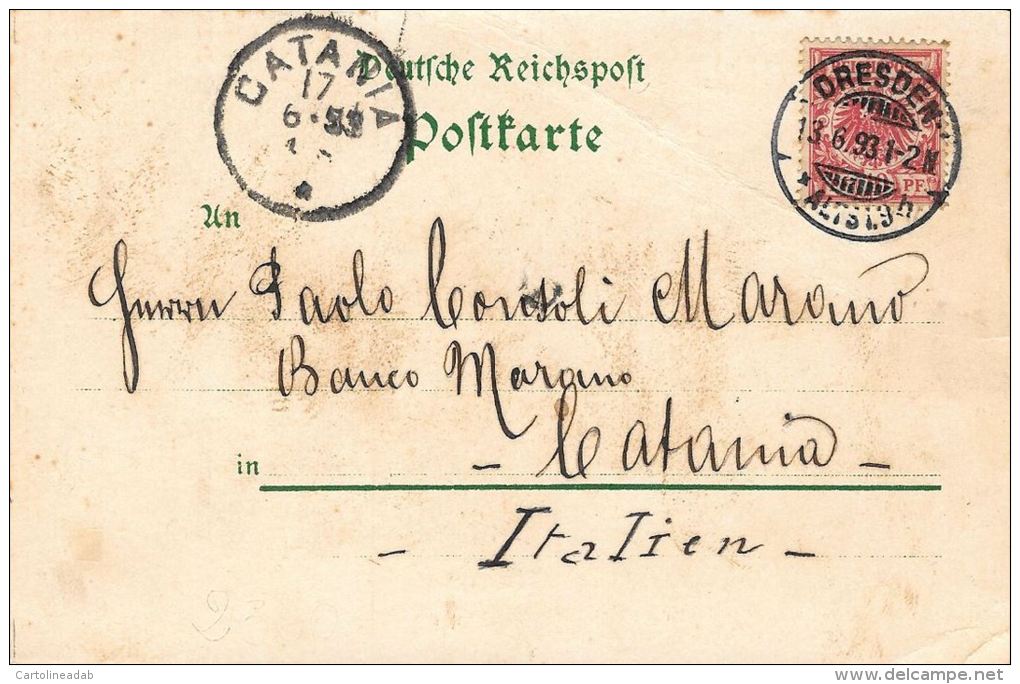 Deutsche Reichspost
Postkarte
CATANIA
17
6-93
DRESDEN
13.6.93.1-2N
PF
An
Herrn Paolo Consoli Marano
Banco Marano
in - Catania -
- Italien -
Cartolineadab
delcampe.net